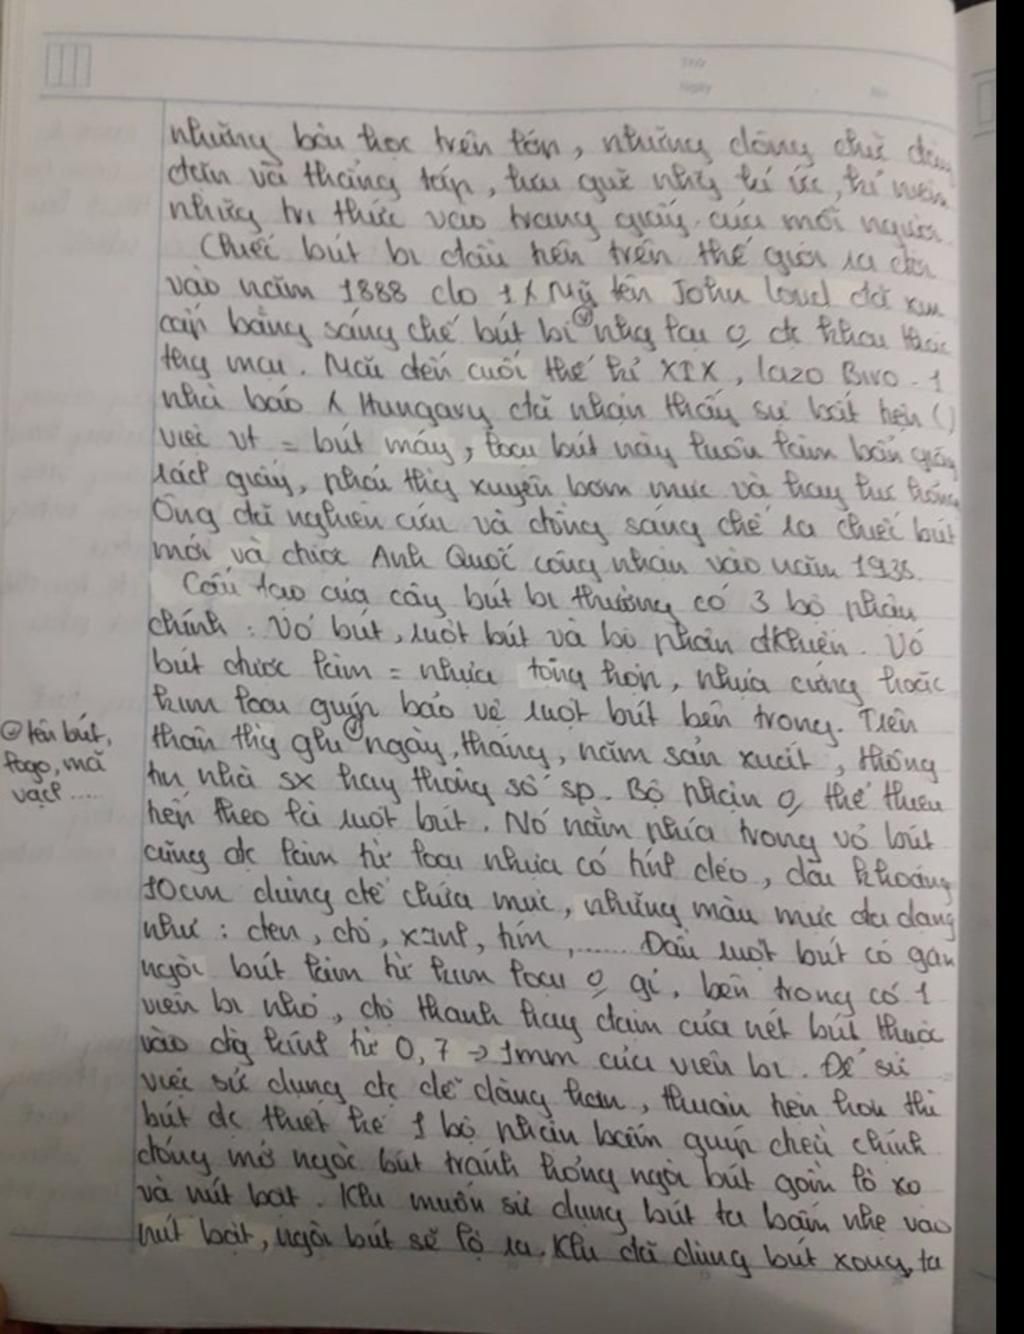 những bài học trên lớp, những dòng chữ
đặn và thẳng tắp, lưu giữ nhg kí ức,
những tri thức vào trang giấy của mỗi người.
Chiếc bút bi đầu tiên trên thế giới ra đời
vào năm 1888 do 1 ng Mỹ tên John Loud đã xin
cấp bằng sáng chế bút bi nhg lại 0 dc khai thác
thg mại. Mãi đến cuối thế kỉ XIX, lazo Biro - 1
nhà báo ng Hungary đã nhận thấy sự bất tiện ()
việc vt = bút máy, loại bút này luôn làm bẩn giấy
rách giấy, phải thg xuyên bơm mực và hay hư hỏng
Ông đã nghiên cứu và đồng sáng chế ra chiếc bút
mới và được Anh Quốc công nhận vào năm 1938.
Cấu tạo của cây bút bi thường có 3 bộ phận
chính: Vỏ bút, ruột bút và bộ phận đkhiển. Vỏ
bút được làm = nhựa tổng hợp, nhựa cứng hoặc
kim loại giúp bảo vệ ruột bút bên trong. Trên
thân thg ghi ngày, tháng, năm sản xuất, thông
tin nhà sx hay thông số sp. Bộ phận 0 thể thiếu
tiếp theo là ruột bút. Nó nằm phía trong vỏ bút
cũng dc làm từ loại nhựa có tính dẻo, dài khoảng
10cm dùng để chứa mực, những màu mực đa dạng
như: đen, đỏ, xanh, tím, ...... Đầu ruột bút có gắn
ngòi bút làm từ kim loại 0 gỉ, bên trong có 1
viên bi nhỏ, độ thanh hay đậm của nét bút thuộc
vào đg kính từ 0,7 -> 1mm của viên bi. Để sử
việc sử dụng dc dễ dàng hơn, thuận tiện hơn thì
bút dc thiết kế 1 bộ phận bấm giúp điều chỉnh
đóng mở ngòi bút tránh hỏng ngòi bút gồm lò xo
và nút bật. Khi muốn sử dụng bút ta bấm nhẹ vào
nút bật, ngòi bút sẽ lộ ra. Khi đã dùng bút xong, ta
tên bút,
logo, mã
vạch .....